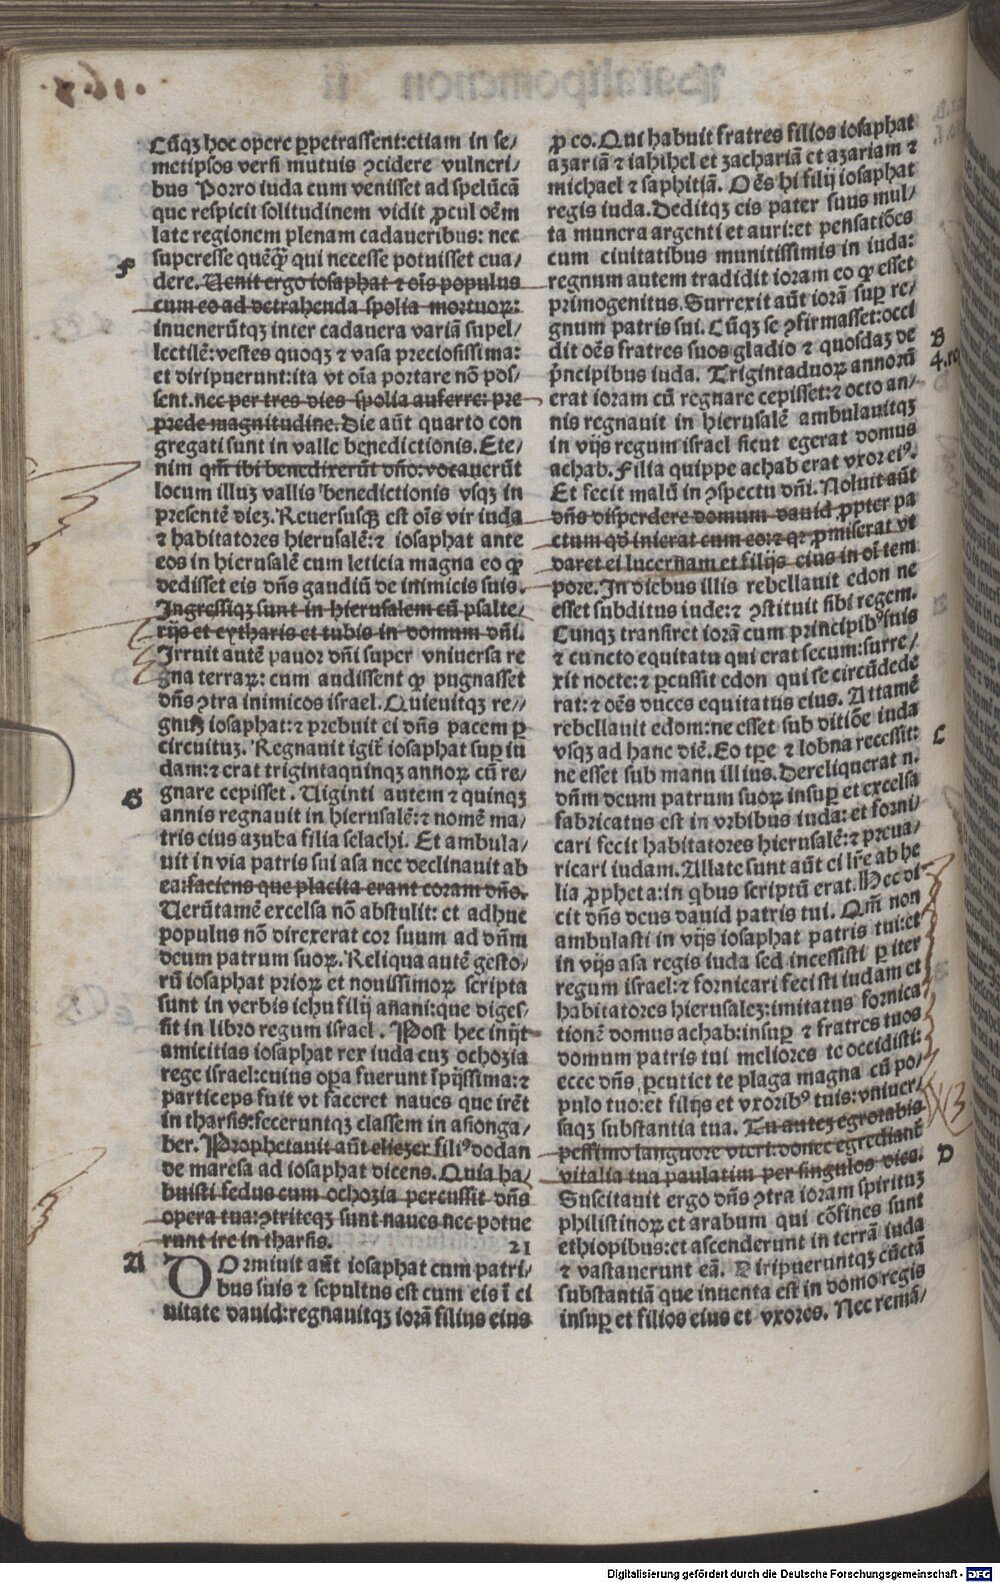 Cũqʒ hoc opere ꝑpetrassent:etiam in se/
metipsos versi mutuis ꝯcidere vulneri/
bus Porro iuda cum venisset ad spelũcã
que respicit solitudinem vidit ꝓcul oẽm
late regionem plenam cadaueribus: nec
superesse quẽꝙ̃ qui necesse potuisset eua/
F
dere. Uenit ergo iosaphat ⁊ oĩs populus
cum eo ad detrahenda spolia mortuoꝝ:
inuenerũtqʒ inter cadauera variã supel/
lectilẽ:vestes quoqʒ ⁊ vasa preciosissima:
et diripuerunt:ita vt oĩa portare nõ pos/
sent.nec per tres dies spolia auferre: pre
prede magnitudine. Die aũt quarto con
gregati sunt in valle benedictionis. Ete/
nim qm̃ ibi benedixerũt dño: vocauerũt
locum illuʒ vallis benedictionis vsqʒ in
presentẽ dieʒ. Reuersusqʒ est oĩs vir iuda
⁊ habitatores hierusalẽ:⁊ iosaphat ante
eos in hierusalẽ cum leticia magna eo ꝙ
dedisset eis dñs gaudiũ de inimicis suis.
Ingressiqʒ sunt in hierusalem cũ psalte/
rijs et cytharis et tubis in domum dñi.
Irruit autẽ pauor dñi super vniuersa re
gna terraꝝ: cum audissent ꝙ pugnasset
dñs ꝯtra inimicos israel. Quieuitqʒ re/
gnuʒ iosaphat:⁊ prebuit ei dñs pacem ꝑ
circuituʒ. Regnauit igit̃ iosaphat suꝑ iu
dam:⁊ erat trigintaquinqʒ annoꝝ cũ re/
G
gnare cepisset. Uiginti autem ⁊ quinqʒ
annis regnauit in hierusalẽ:⁊ nomẽ ma/
tris eius azuba filia selachi. Et ambula/
uit in via patris sui asa nec declinauit ab
ea:faciens que placita erant coram dño.
Uerũtamẽ excelsa nõ abstulit: et adhuc
populus nõ direxerat cor suum ad dñm
deum patrum suoꝝ. Reliqua autẽ gesto/
rũ iosaphat prioꝝ et nouissimoꝝ scripta
sunt in verbis iehu filij anani:que diges/
sit in libro regum israel. Post hec inijt
amicitias iosaphat rex iuda cuʒ ochozia
rege israel:cuius oꝑa fuerunt ĩpijssima:⁊
particeps fuit vt faceret naues que irẽt
in tharsis:feceruntqʒ classem in asionga/
ber. Prophetauit aũt eliezer filiꝰ dodan
de maresa ad iosaphat dicens. Quia ha/
buisti fedus cum ochozia percussit dñs
opera tua:ꝯtriteqʒ sunt naues nec potue
runt ire in tharsis. 21
A
DOrmiuit aũt iosaphat cum patri/
bus suis ⁊ sepultus est cum eis ĩ ci
uitate dauid:regnauitqʒ iorã filius eius
ꝓ eo. Qui habuit fratres filios iosaphat
azariã ⁊ iahihel et zachariã et azariam ⁊
michael ⁊ saphitiã. Oẽs hi filij iosaphat
regis iuda. Deditqʒ eis pater suus mul/
ta munera argenti et auri:et pensatiões
cum ciuitatibus munitissimis in iuda:
regnum autem tradidit ioram eo ꝙ esset
primogenitus. Surrexit aũt iorã suꝑ re/
gnum patris sui. Cũqʒ se ꝯfirmasset:occi
dit oẽs fratres suos gladio ⁊ quosdaʒ de
B
p̃ncipibus iuda. Trigintaduoꝝ annorũ
erat ioram cũ regnare cepisset:⁊ octo an/
nis regnauit in hierusalẽ ambulauitqʒ
in vijs regum israel sicut egerat domus
achab. Filia quippe achab erat vxor eiꝰ.
Et fecit malũ in ꝯspectu dñi. Noluit aũt
dñs disperdere domum dauid ꝓpter pa
ctum qđ inierat cum eo:⁊ qꝛ ꝓmiserat vt
daret ei lucernam et filijs eius in oĩ tem
pore. In diebus illis rebellauit edon ne
esset subditus iude:⁊ ꝯstituit sibi regem.
Cunqʒ transiret iorã cum principibꝰ suis
⁊ cuncto equitatu qui erat secum:surre/
xit nocte:⁊ ꝑcussit edon qui se circũdede
rat:⁊ oẽs duces equitatus eius. Attamẽ
rebellauit edom:ne esset sub ditiõe iuda
vsqʒ ad hanc diẽ. Eo tꝑe ⁊ lobna recessit:
C
ne esset sub manu illius. Dereliquerat n.
dñm deum patrum suoꝝ insuꝑ et excelsa
fabricatus est in vrbibus iuda: et forni/
cari fecit habitatores hierusalẽ:⁊ p̃ua/
ricari iudam. Allate sunt aũt ei lr̃e ab he
lia ꝓpheta:in qbus scriptũ erat. Hec di
cit dñs deus dauid patris tui. Qm̃ non
ambulasti in vijs iosaphat patris tui:et
in vijs asa regis iuda sed incessisti ꝑ iter
regum israel:⁊ fornicari fecisti iudam et
habitatores hierusaleʒ:imitatus fornica
tionẽ domus achab:insuꝑ ⁊ fratres tuos
domum patris tui meliores te occidisti:
ecce dñs ꝑcutiet te plaga magna cũ po/
pulo tuo:et filijs et vxoribꝰ tuis:vniuer/
saqʒ substantia tua. Tu auteʒ egrotabis
pessimo languore vteri: donec egrediant̃
vitalia tua paulatim per singulos dies.
D
Suscitauit ergo dñs ꝯtra ioram spirituʒ
philistinoꝝ et arabum qui cõfines sunt
ethiopibus:et ascenderunt in terrã iuda
⁊ vastauerunt eã. Diripueruntqʒ cũctã
substantiã que inuenta est in domo regis
insuꝑ et filios eius et vxores. Nec remã/
Digitalisierung gefördert durch die Deutsche Forschungsgemeinschaft - DFG